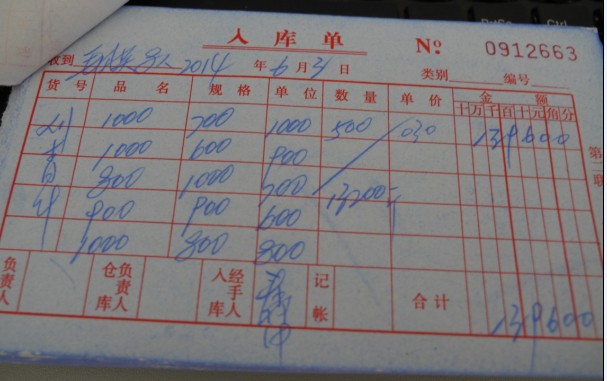 入库单
№ 0912663
收到 2014年6月3日 类别 编号
货号 品名 规格 单位 数量 单价 金额
十万千百十元角分
1000 700 1000 500 030 139600
1000 600 900
800 1000 700 13200元
900 900 600
1000 800 800
第二联
负责人 仓库负责人 入库经手人 记帐 合计 139600